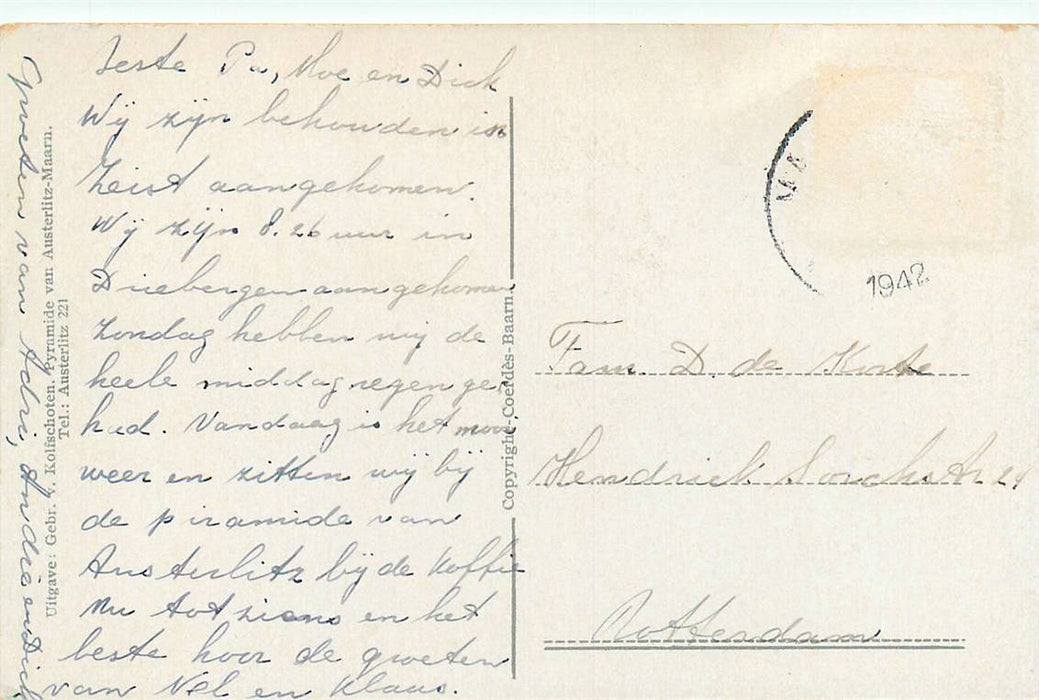 Beste Pa, Moe en Dick
Wij zijn behouden in
Zeist aangekomen.
Wij zijn 8.26 uur in
Driebergen aangekomen
Zondag hebben wij de
heele middag regen ge
had. Vandaag is het mooi
weer en zitten wij bij
de piramide van
Austerlitz bij de koffie
Nu tot ziens en het
beste hoor de groeten
van Nel en Klaas.
Groeten van Adri, André en Dick
Uitgave: Gebr. v. Kolfschoten. Pyramide van Austerlitz-Maarn.
Tel.: Austerlitz 221
Copyright-Coerdès-Baarn.
1942
Fam. D. de Korte
Hendrick Sorchstr 29
Rotterdam